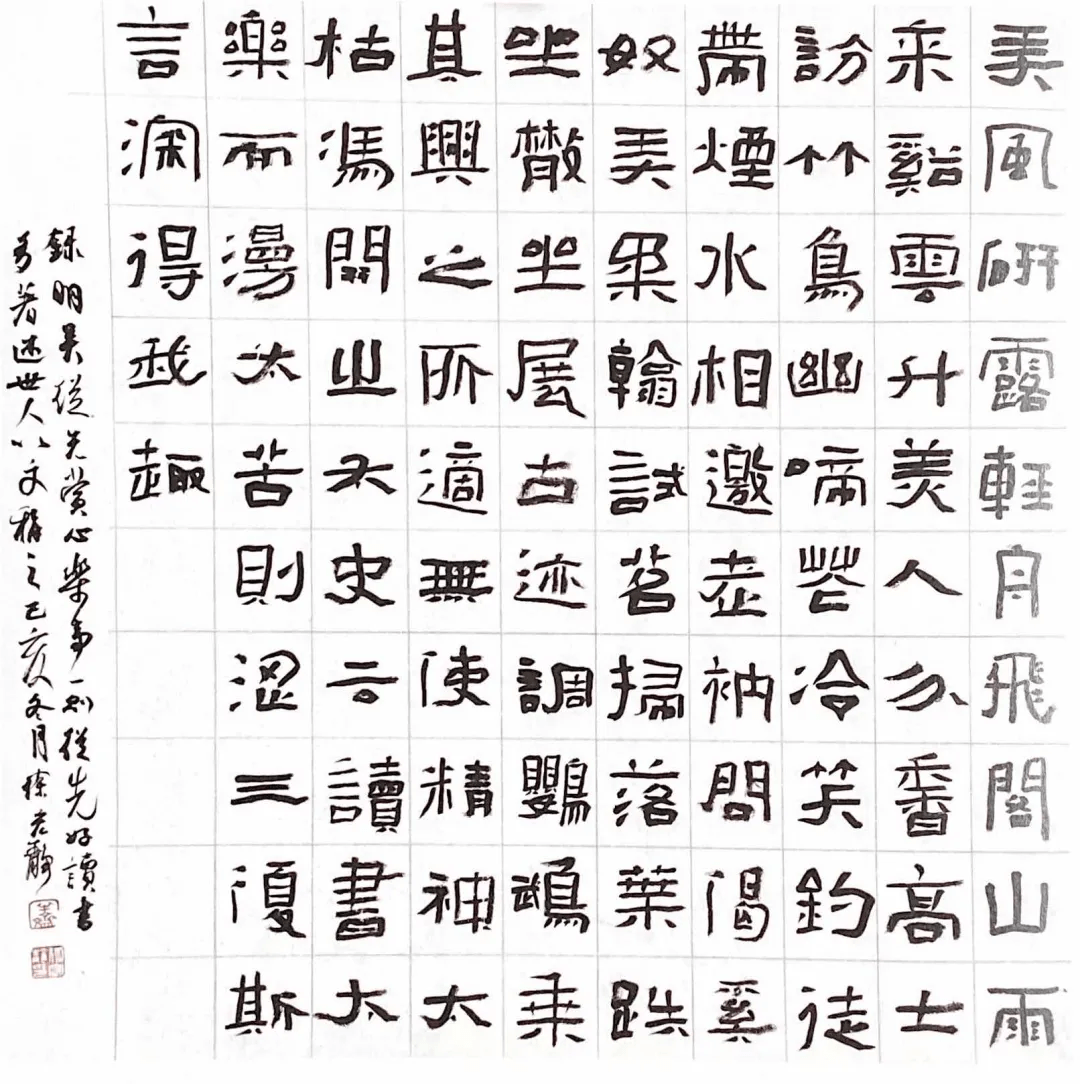 弄風研露輕舟飛閣山雨
来谿雲升美人分香高士
訪竹鳥幽啼花冷笑釣徒
帶煙水相邀老衲問偈奚
奴弄柔翰試茗掃落葉趺
坐散坐展古迹調鸚鵡乘
其興之所適無使精神太
枯馮開之太史云讀書太
樂而漫太苦則澀三復斯
言深得我趣
録明吳從先賞心樂事一則從先好讀書
多著述世人以文稱之己亥冬月